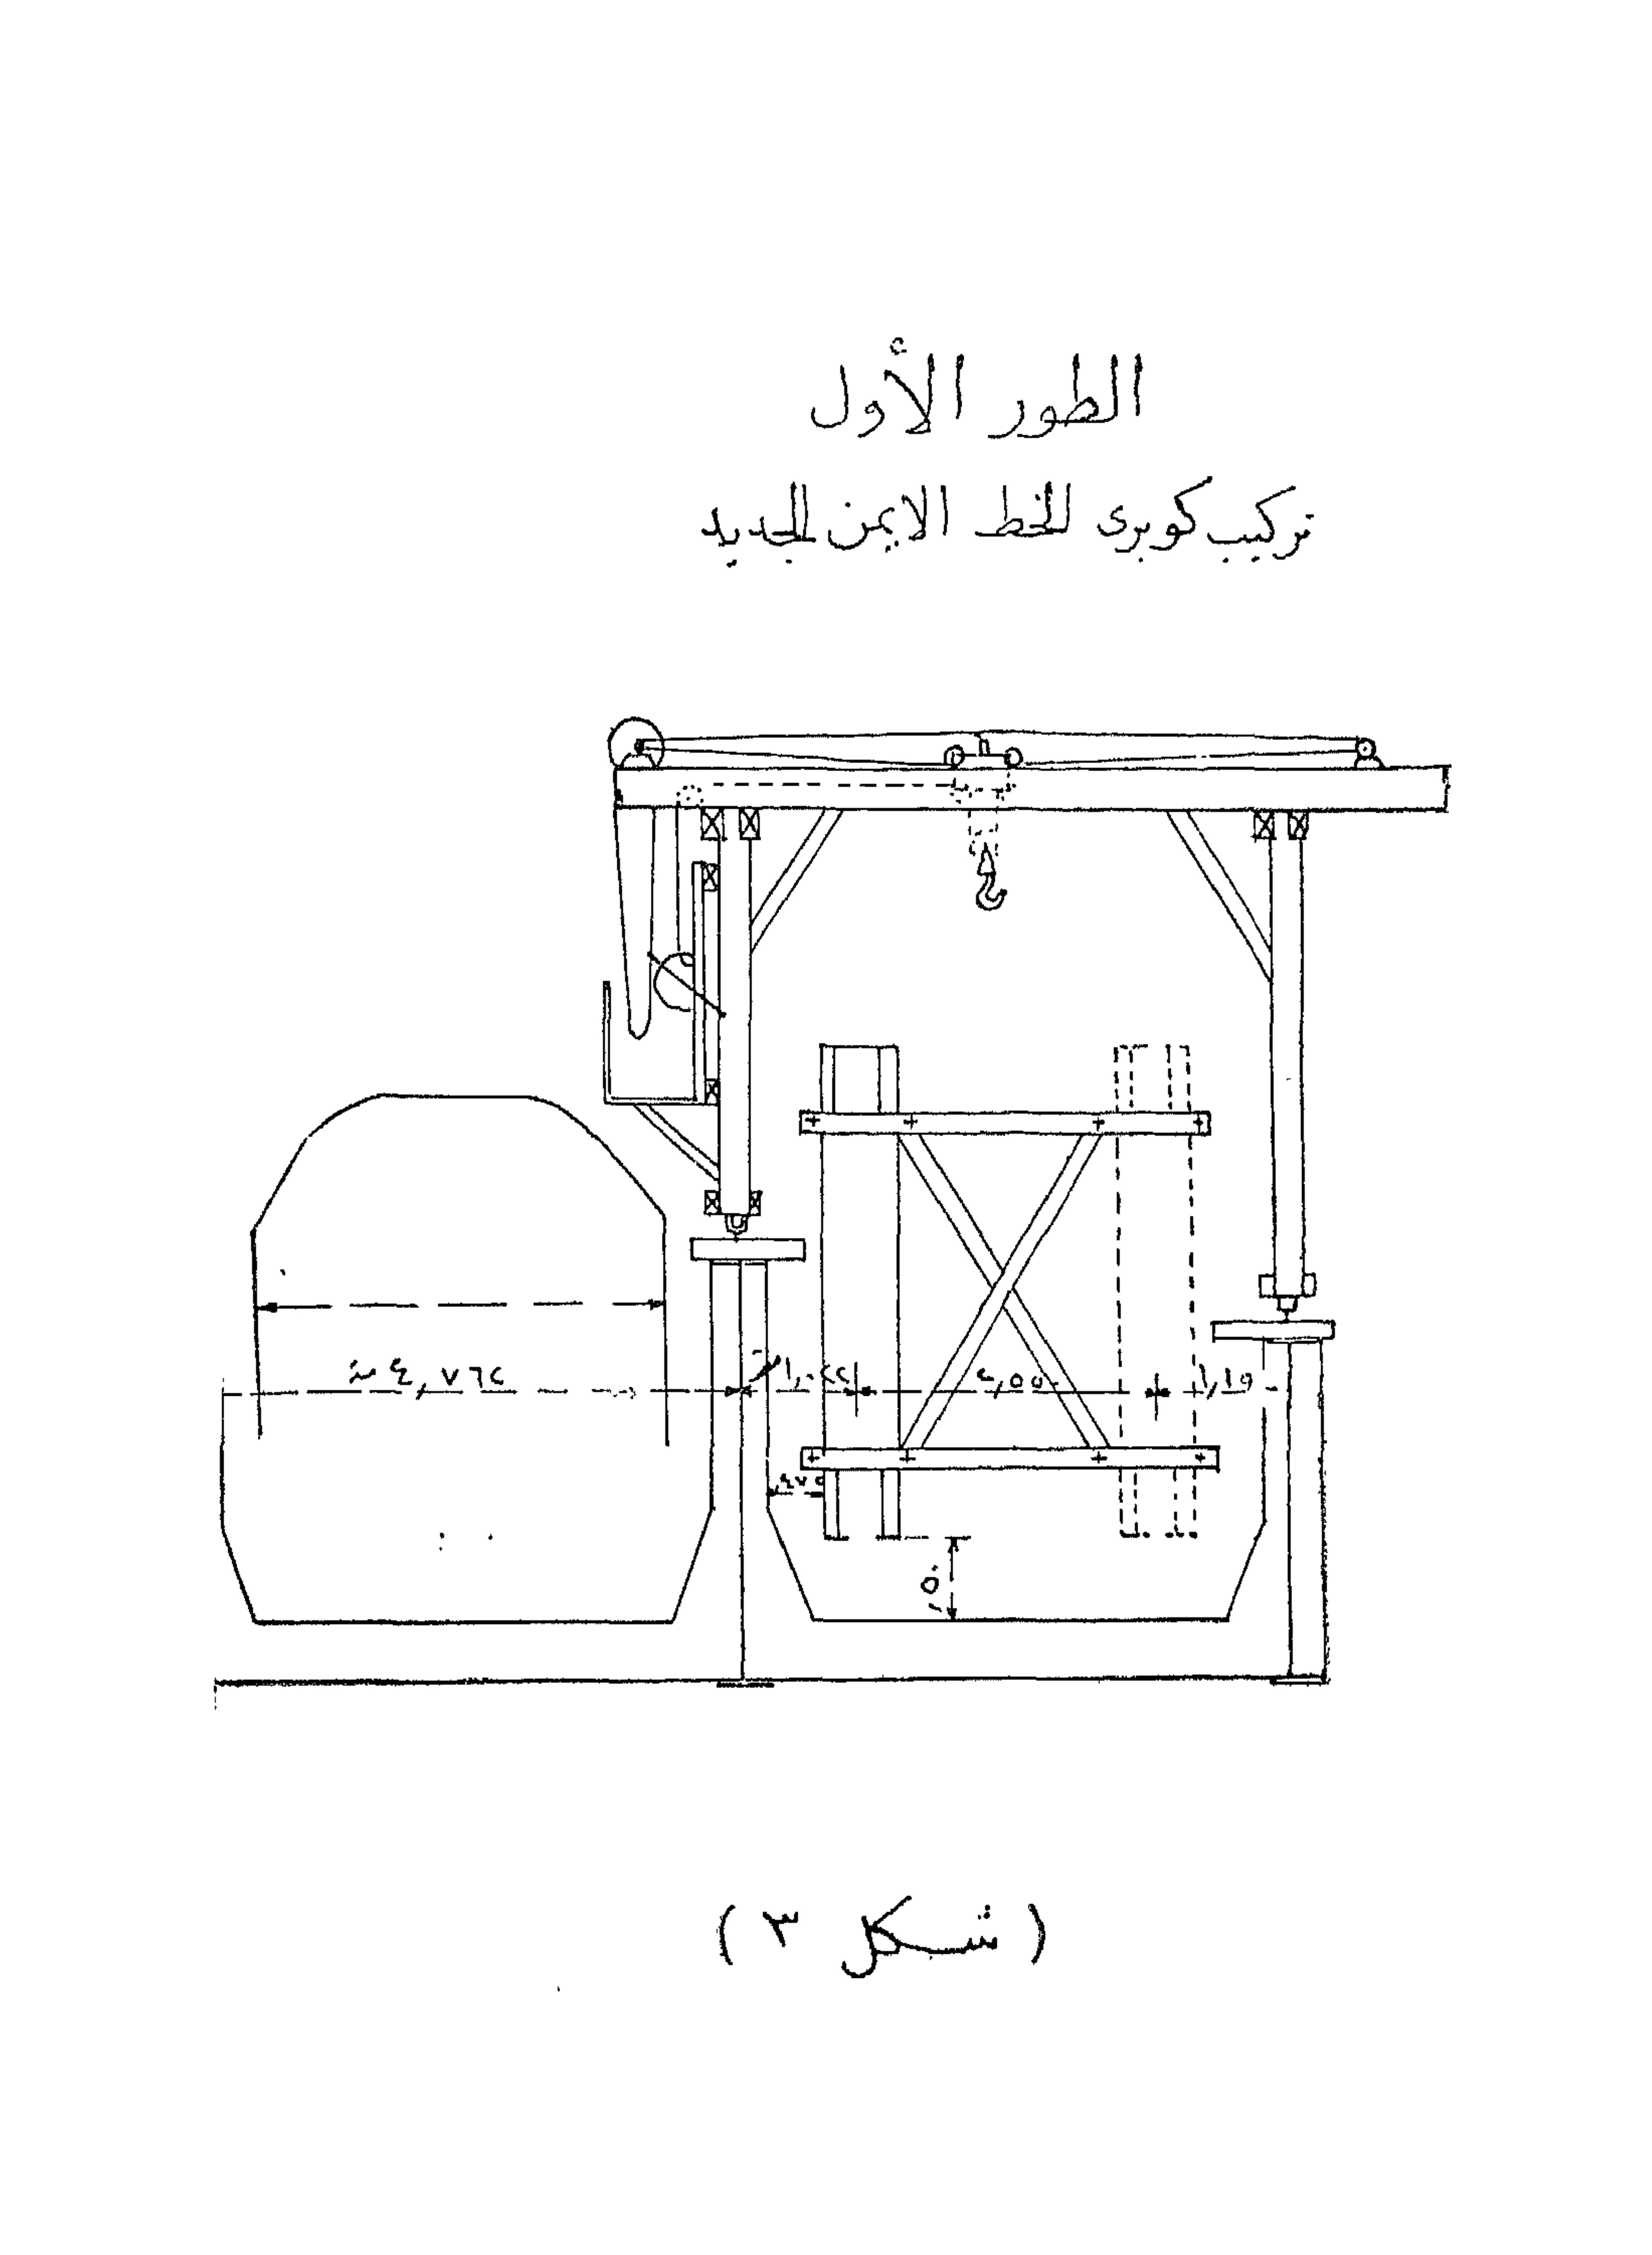 الطور الأول
تركيب كوبرى للخط الايمن الجديد
٤,٧٦٢
١,٠٢٢
٢,٥٥٠
١,١٥
,٥٠
( شكل ٣ )